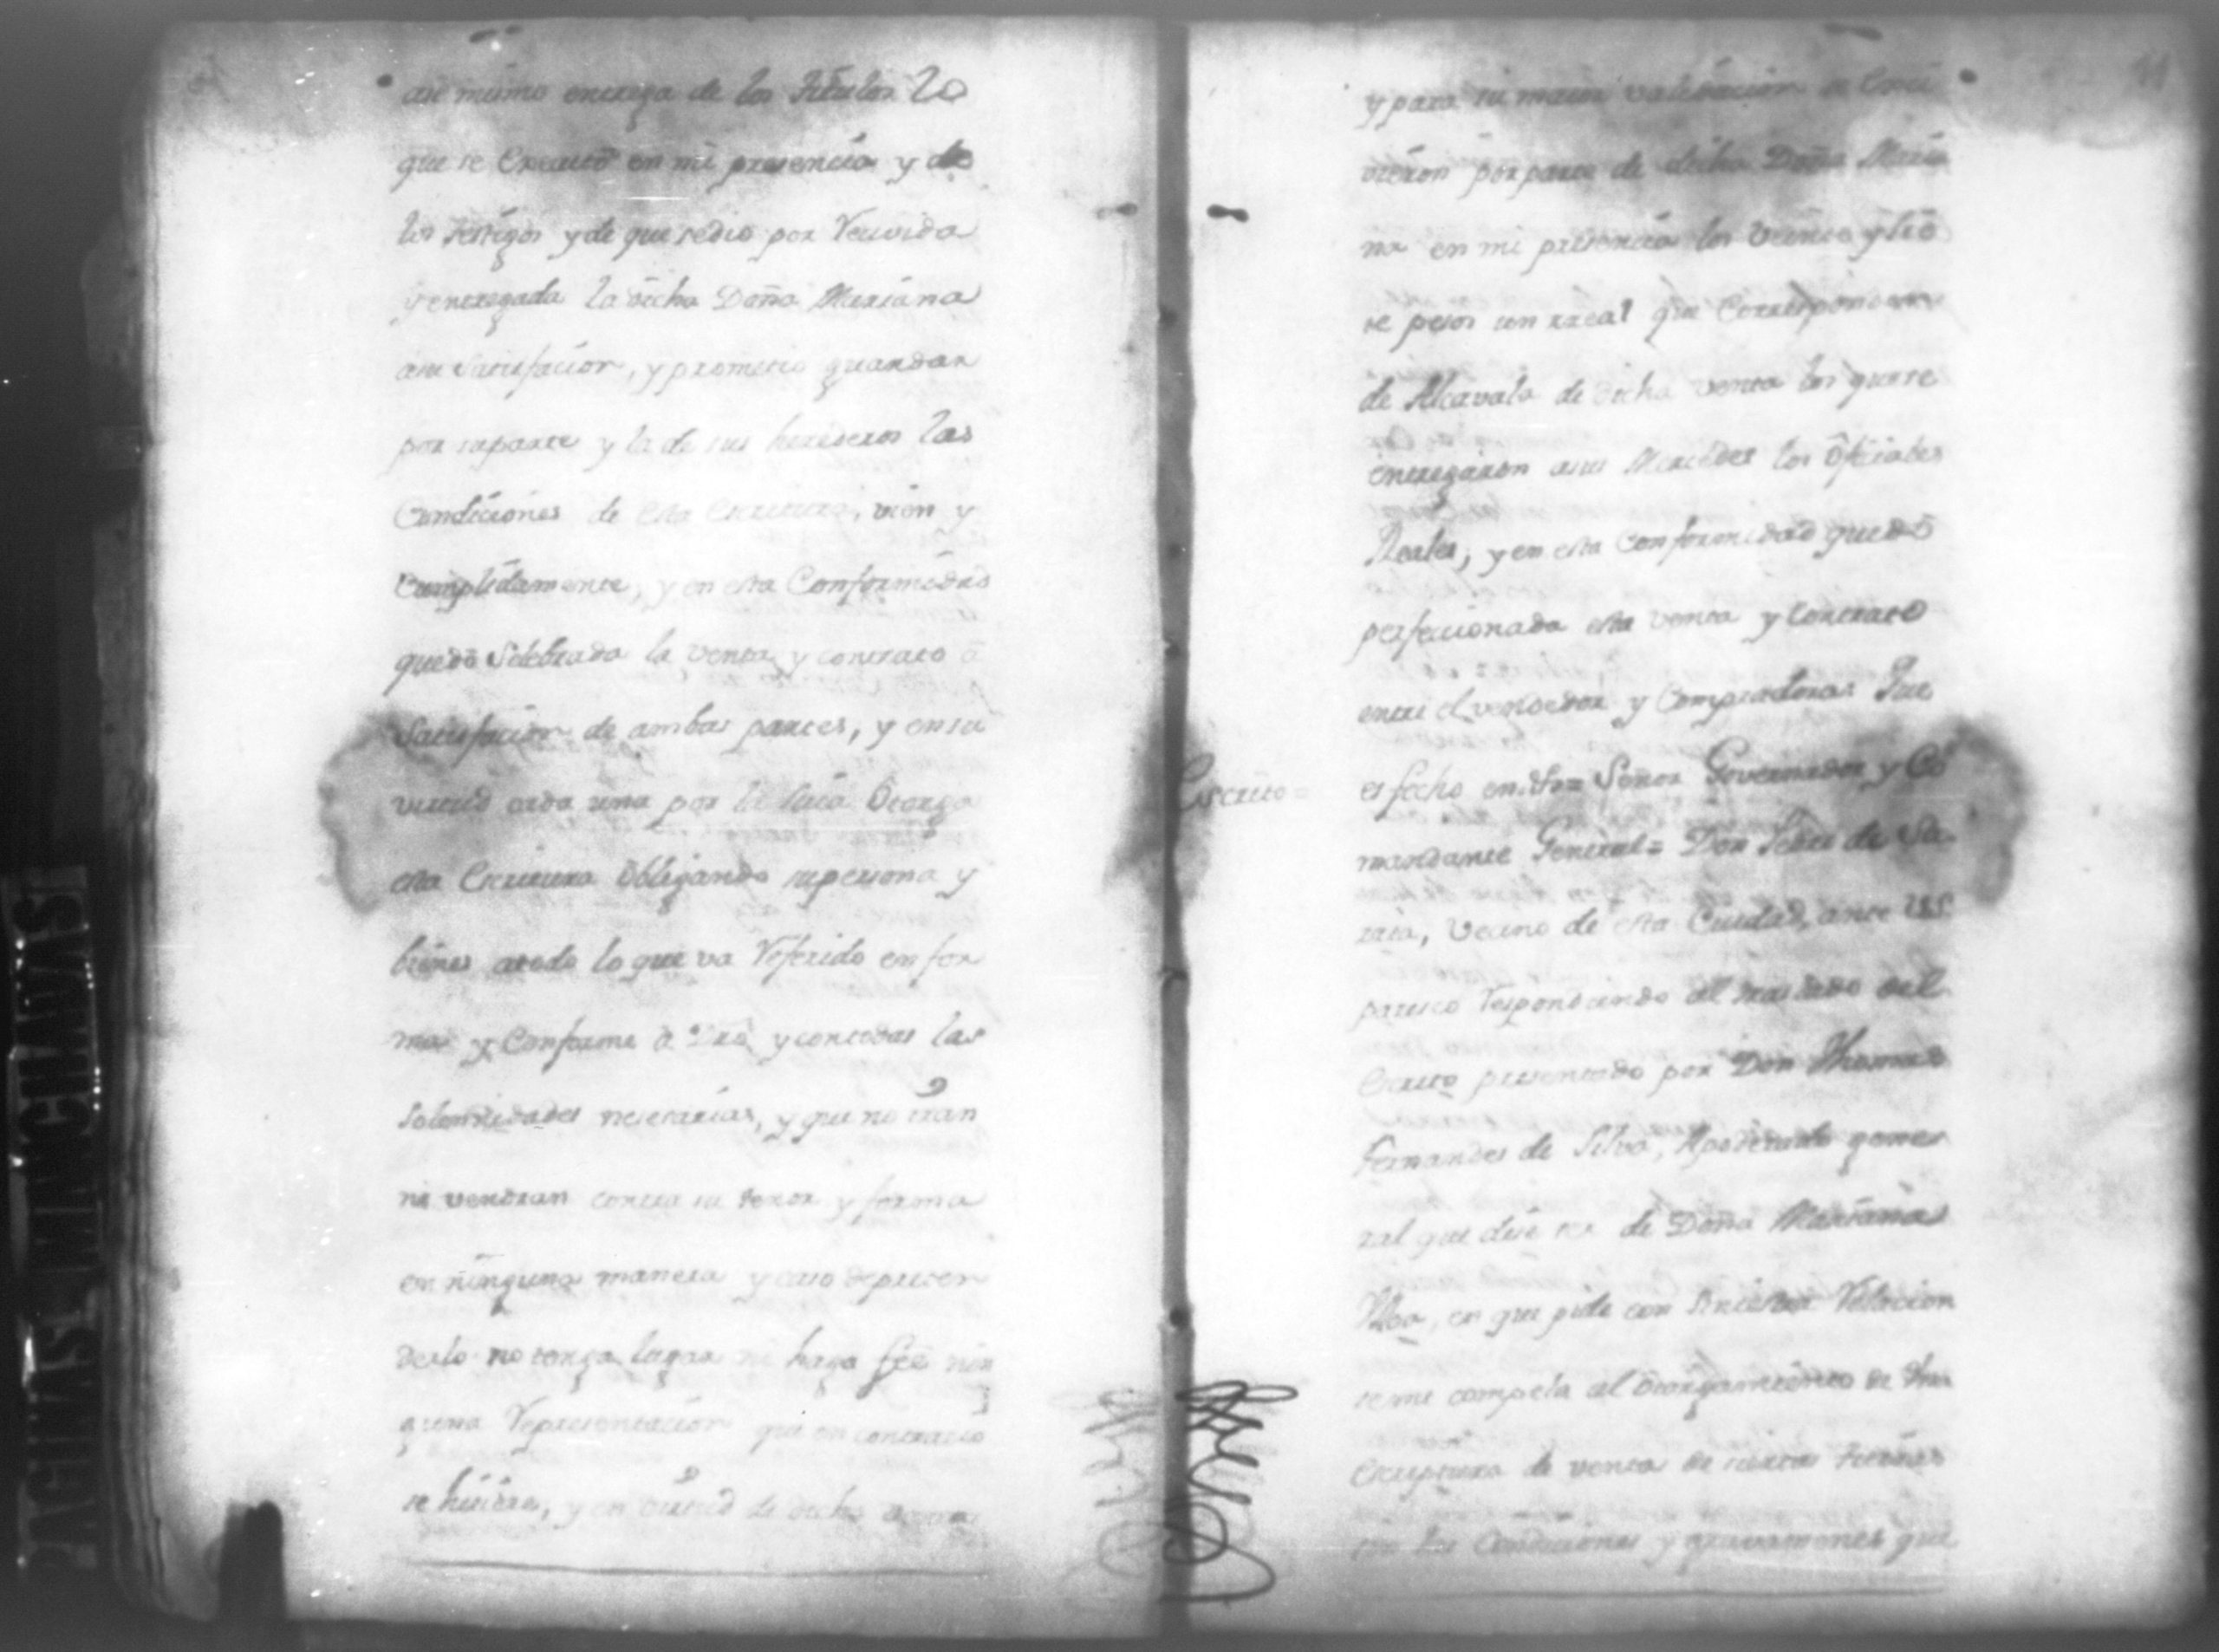 asi mismo entrega de los titulos lo
que se Executo en mi presencia y de
los testigos y de que se dio por Recivida
y entregada la dicha Doña Mariana
asu satisfacion, y prometio guardar
por su parte y la de sus herederos las
Condiciones de esta escritura, vien y
Cumplidamente, y en esta Conformidad
quedò Selebrada la venta y contrato à
Satisfacion de ambas partes, y en su
virtud cada una por la suia Otorga
esta Escritura Obligando su persona y
bienes atodo lo que va Referido en for
ma y Conforme à Dro y contodas las
solemnidades nesesarias, y que no iran
ni vendran contra su tenor y forma
en ninguna manera y caso de preten
derlo no tenga lugar ni haga feè nin
guna Representacion que en contrario
se hiciere, y en virtud de dicho
y para su maior validacion se
vieron por parte de dicha Doña Maria
na en mi presencia los veinte y
se pesos un rreal que Correspondieron
de Alcavala de dicha venta los que se
entregaron asus Mercedes los Ofeciales
Reales, y en esta Conformidad quedò
perfeccionada esta venta y Contrato
entre el vendedor y Compradora Que
Escrito=
es fecho = Señor Governador y Co
mandante General= Don Pedro de Sa
raia, Vecino de esta Ciudad, ante US
paresco respondiendo al traslado del
Escrito presentado por Don Thomas
Fernandes de Silva, Apoderado gene
ral que dise ser de Doña Mariana
Ulloa, en que pide con siniestra Relacion
se me compela al Otorgamiento de
Escriptura de venta de siertas tierras
sin las Condiciones y gravamenes que
PAGINAS MANCHADAS